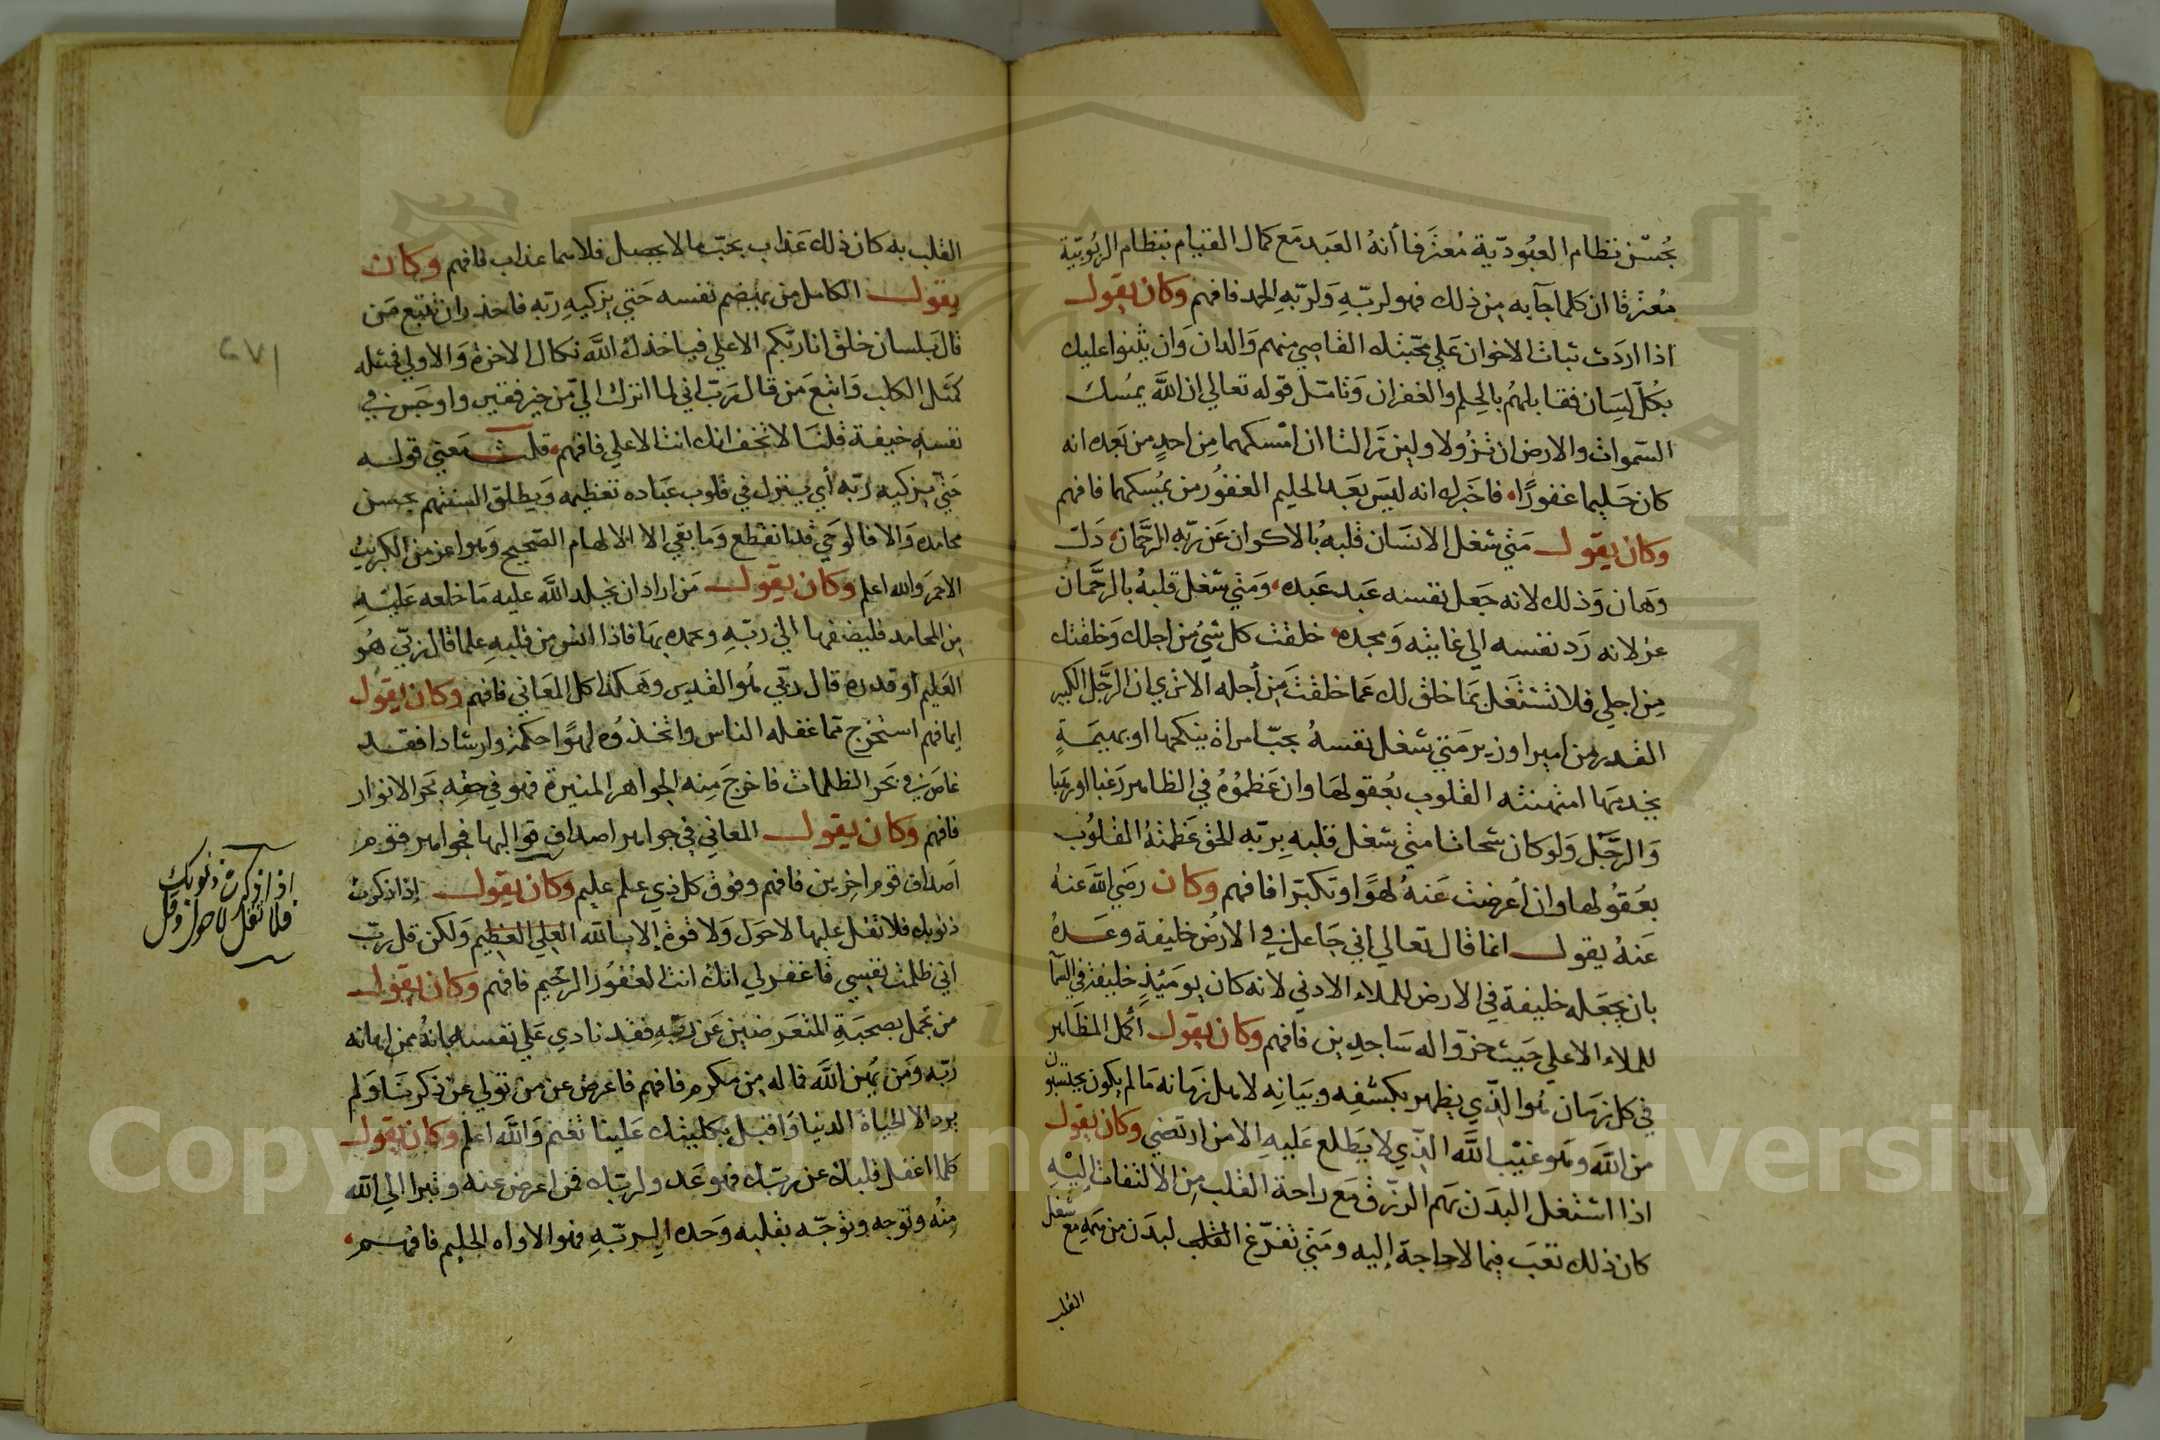 بحُسْن نظام العبُوديّة مُعترفا أنهُ العَبد مَع كمال القيام بنظام الربُوبيّة
مُعترفا ان كلما جآ به مِن ذلك فهو لربّهِ وَلربّهِ الحمد فافهم وكان يقول
اذا اردَت ثبات الاخوان عَلي محّبتك القاصِي منهم وَالدان وَان يثنوا عليك
بكُلّ لِسَان فقابلهُم بالحِلم والغفران وَتامّل قوله تعالي ان اللَّه يمُسك
السّموات والارض ان تزُولا ولين زَالتا ان امْسكهما مِن احدٍ من بَعده انه
كان حَليما غفورًا، فاخبَرك انه ليسَ بَعد الحليم الغفُور من يمُسكهما فافهم
وكان يقول مَتي شغل الانسَان قلبهُ بالاكوان عَن ربّهِ الرَّحمان، ذلّ
وهَان وَذلك لانه جَعل نفسه عَبد عَبده، وَمتي شغل قلبهُ بالرَّحمان
عز لانه رَد نفسه الي غايته وَمجده، خلقت كل شيُ من اجلك وَخلقتك
مِن اجلي فلا تشتغل بمَا خلق لك عَما خلقتَ مِن أجله الا تري ان الرَّجُل الكبير
القدر من امير او زير مَتي شغل نفسهُ بحبّ امراة ينكحها او بهيمَةٍ
يخدمهَا امتهنته القلوب بعُقولهَا وان عَظموُهُ في الظاهر رَغبا او رهَبا
وَالرجُّل وَلو كان شحاتا متي شغل قلبه بِربّه الحق عَظمتهُ القلوُب
بعُقوُلها وان أعُرضت عَنهُ لهوًا وتكبرّا فافهم وكان رضي اللَّه عَنهُ
عَنهُ يقول انما قال تعالي اني جَاعل في الارض خليفة وعَدهُ
بان يجعَله خليفة في الارض للملاء الادني لانه كان يومَيُذٍ خليفة في السمآ
للملاء الاعلي حَيث خرّوا له سَاجدين فافهم وكان يقول أكمل المظَاهر
في كل زمَان هُو الذّي يظهر بكشفِه وبيَانِه لاهل زمَانه مَا لم يكون يحتسبون
من اللَّه وهَو غيْب اللَّه الذّي لا يَطلع عَليهِ الا من ارتضي وكان يقول
اذا اشتغل البدَن بهَم الرزّق مَع راحة القلب مِن الالتفات إليْهِ
كان ذلك تعَب فيما لا حاجة إليه ومَتي تفرّغ القلب لبدَن من همّه مع شغل
القلب
القلب به كان ذلك عَذاب بحبّ ما لا يحصل فلاهما عذاب فافهم وكان
يقول الكامل من يهضم نفسه حَتي يزكيهِ ربّه فاحذر ان تتبع مَن
قال بلسان خلق انا ربّكم الاعلي فياخذك اللَّه نكال الاخرة وَالاولي فمثله
كمثَل الكلب وَاتبع مَن قال رَبّ اني لما انزلت اليّ من خير فقير واوجَس في
نفسهِ خيفة قلنا لا تخف انك انت الاعلي فافهم، قلت مَعني قوله
حَتي يزكيهِ ربّه أي ينزل في قلوب عبَاده تعظيمه وَيطلق السنتهم بحسن
محامده وَالا فالوحي قد انقطع وَما بقي الا الالهام الصّحيح وَهو اعز من الكبريت
الاحمر وَالله اعلم وكان يقول مَن اراد ان يخلد اللَّه عليه مَا خلعه عَليْهِ
مِن المحامد فليضفها الي ربّهِ وحمده بها فاذا النس من قلبهِ علما قال ربّي هوُ
العَليم او قدرة قال ربّي هُو القدير وهَكذا كل المعَاني فافهم وكان يقوُل
ايما فهم استخرج مما غفله الناس واتخذوُه لهوًا حكمة وارشادا فقد
غاصَ في بَحر الظلمات فاخرجَ مِنه الجواهر المنيرة فهو في حقه بحَر الانوار
فافهم وكان يقول المعاني في جواهر اصداف قوالبها فجواهر قوم
أصداف قوم اخِرين فافهم وفوُق كل ذي علم عليم وكان يقول إذا ذكرت
ذنوبك فلا تقل عليها لا حول وَلا قوة إلا بالله العلي العَظيم وَلكن قل ربّ
اني ظلمت نفسِي فاغفر لي انك انت الغفوُر الرحَيم فافهم وكان يقول
من تجمل بصحبَةِ المتعَرضين عَن ربّهِ فقد نادي عَلي نفسه بانهُ ممن اهانه
رُبّه ومَن يُهن اللَّه فما له مِن مكرم فافهم فاعرض عن من تولي عن ذكرنَا وَلم
يرد الا الحياة الدنيا وَاقبل بكليتك عَلينا تغنم وَاللَّه اعلم وكان يقول
كلما اغفل قلبك عن ربّك فهو عَدو لربّك فمن اعرض عنه وتبرا الي اللَّه
مِنهُ وتوجه وتوجّه بقلبه وَحده الي ربّهِ فهو الاواه الحليم فافهم،
اذا ذكرت ذنوبك
فلا تقل لا حول وقل